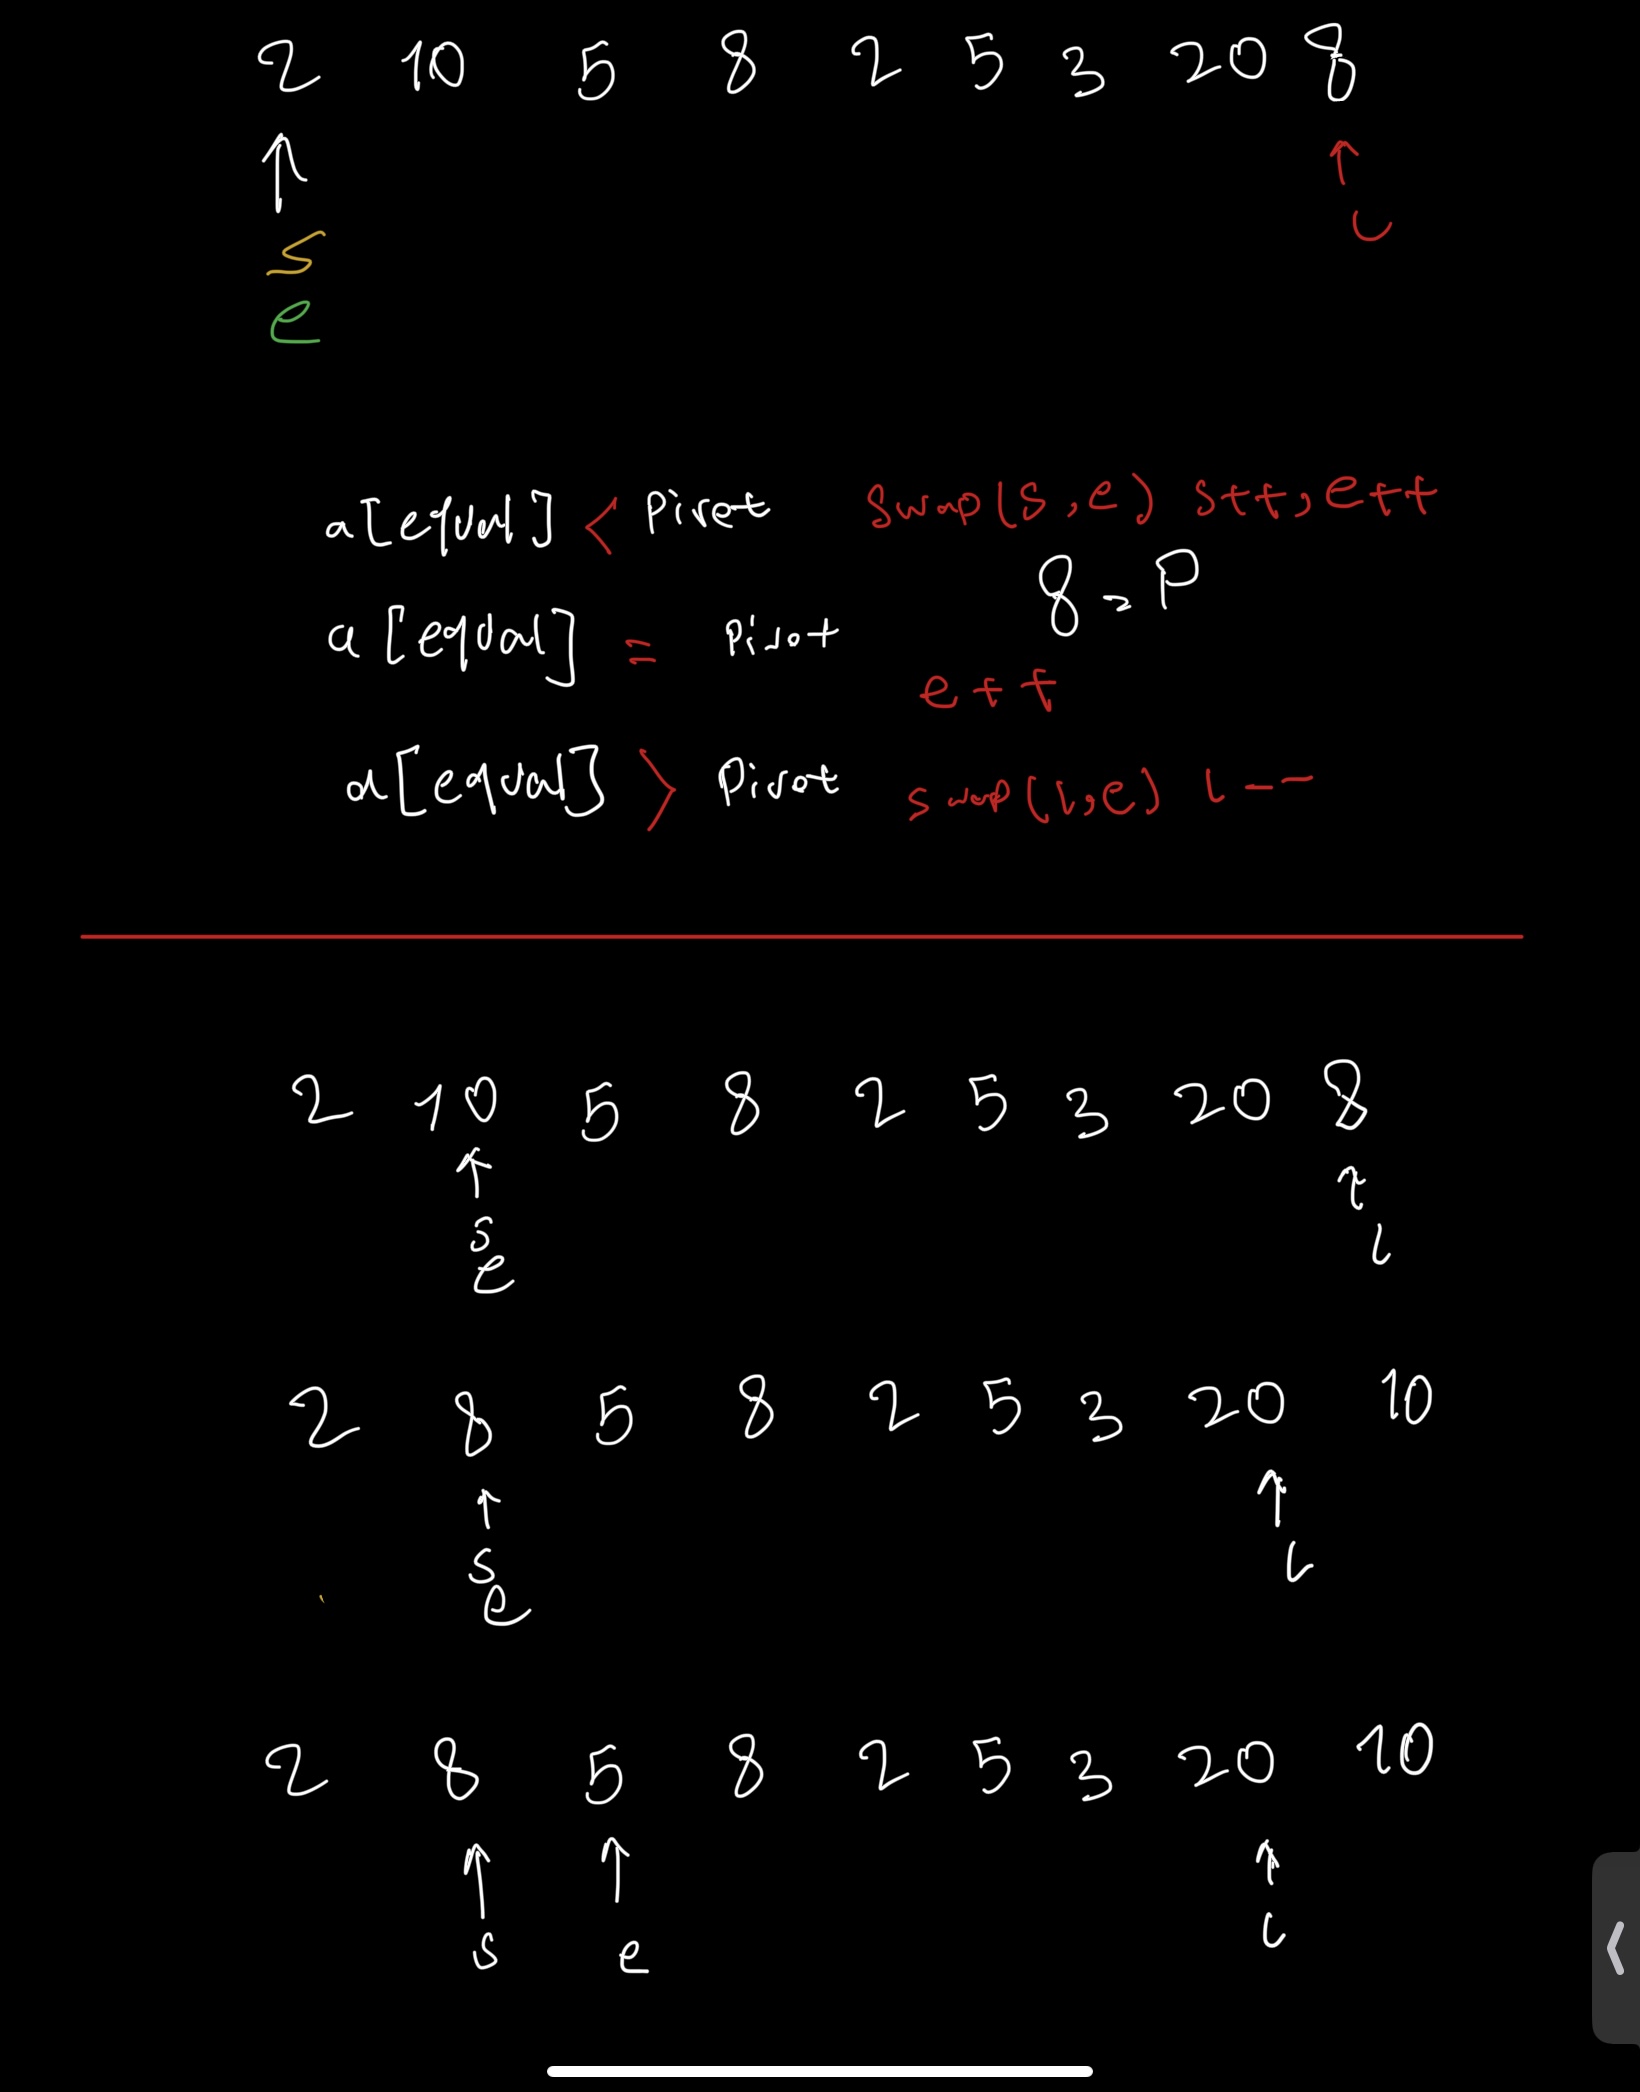 2 10 5 8 2 5 3 20 8
↑ ↑
s L
e
a[equal] < Pivot swap(s,e) s++,e++
8 = P
a[equal] = Pivot
e++
a[equal] > Pivot swap(l,e) l--
2 10 5 8 2 5 3 20 8
↑ ↑
s l
e
2 8 5 8 2 5 3 20 10
↑ ↑
s L
e
2 8 5 8 2 5 3 20 10
↑ ↑ ↑
s e L